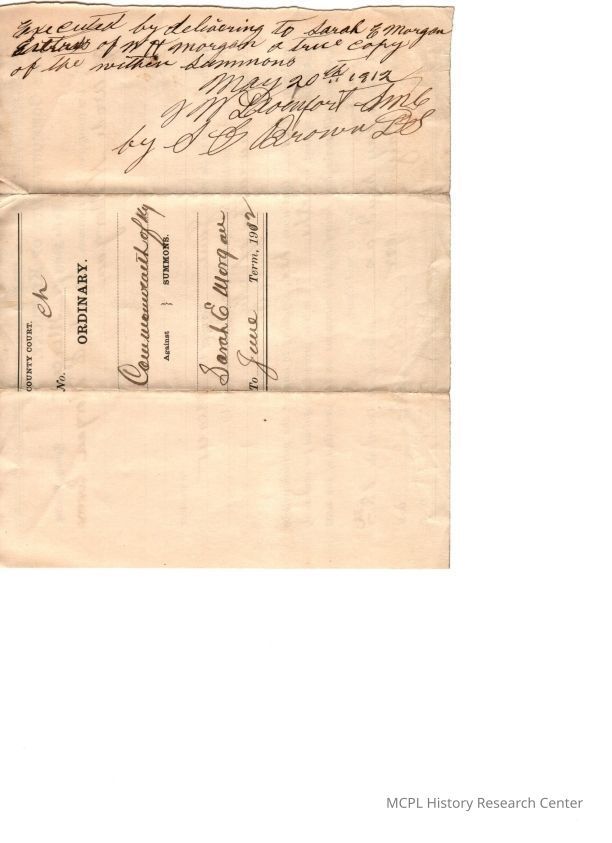 Executed by delivering to Sarah E Morgan
of W H Morgan a true copy
of the within Summons
May 20th 1912
J W Davenport S M C
by S G Brown D S
COUNTY COURT.
No.
ORDINARY.
Commonwealth of Ky
Against } SUMMONS.
Sarah E Morgan
To June Term, 1912
MCPL History Research Center